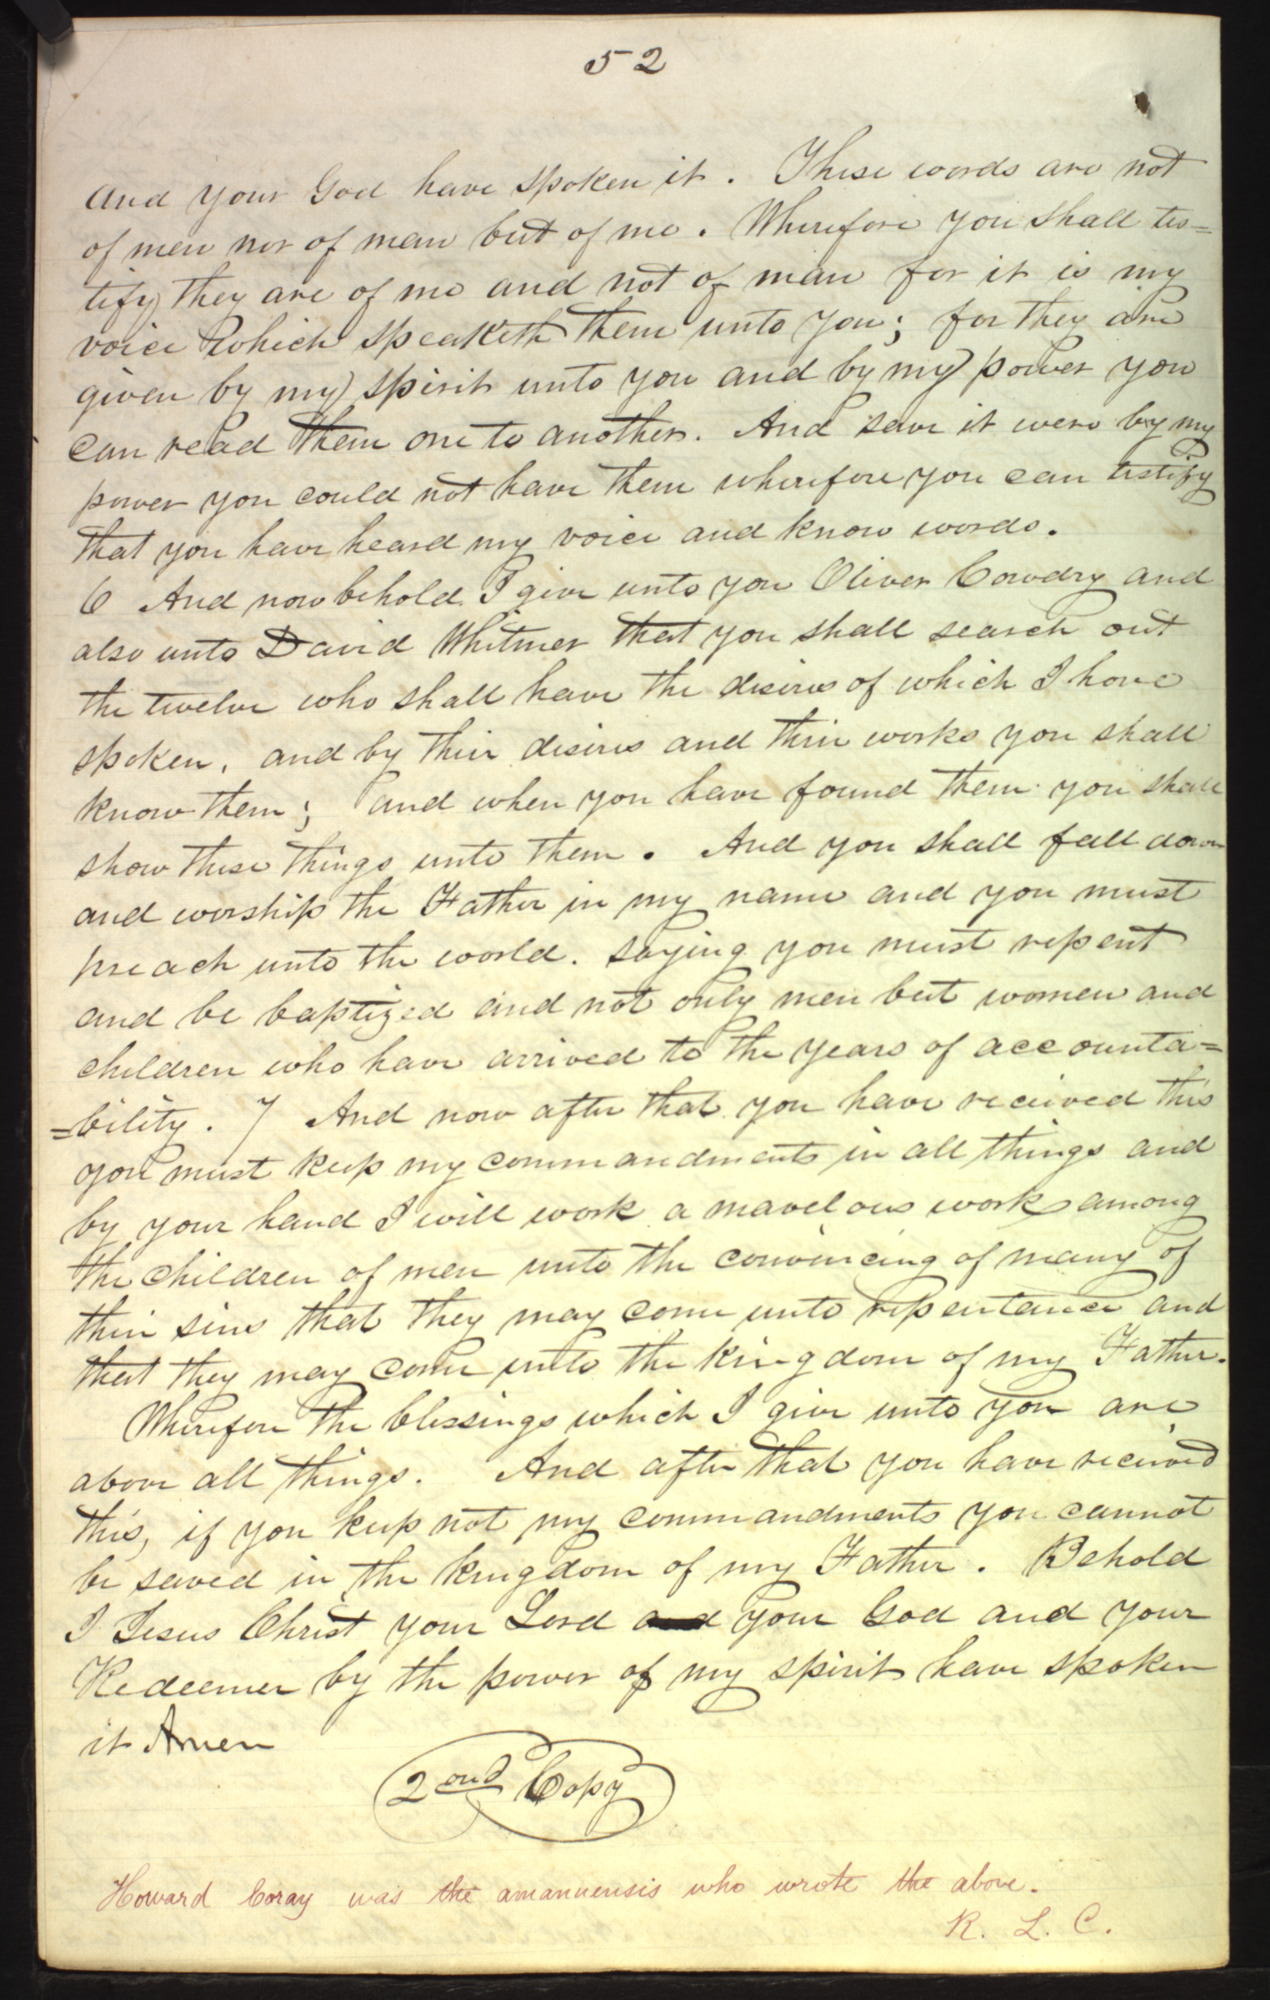 52
and your God have spoken it. These words are not
of men nor of man but of me. Wherefore you shall tes=
tify they are of me and not of man for it is my
voice which speaketh them unto you; for they are
given by my spirit unto you and by my power you
can read them one to another. And save it were by my
power you could not have them wherefore you can testify
that you have heard my voice and know words.
6 And now behold I give unto you Oliver Cowdry and
also unto David Whitmer that you shall search out
the twelve who shall have the desires of which I have
spoken, and by their desires and their works you shall
know them; and when you have found them you shall
show these things unto them. And you shall fall down
and worship the Father in my name and you must
preach unto the world. saying you must repent
and be baptized and not only men but women and
children who have arrived to the years of accounta=
=bility. 7 And now after that you have received this
you must keep my commandments in all things and
by your hand I will work a mavelous work among
the children of men unto the convincing of many of
their sins that they may come unto repentance and
that they may come unto the kingdom of my Father.
Wherefore the blessings which I give unto you are
above all things. And after that you have received
this, if you keep not my commandments you cannot
be saved in the kingdom of my Father. Behold
I Jesus Christ your Lord and your God and your
Redeemer by the power of my spirit have spoken
it Amen
2ond Copy
Howard Coray was the amanuensis who wrote the above.
R. L. C.